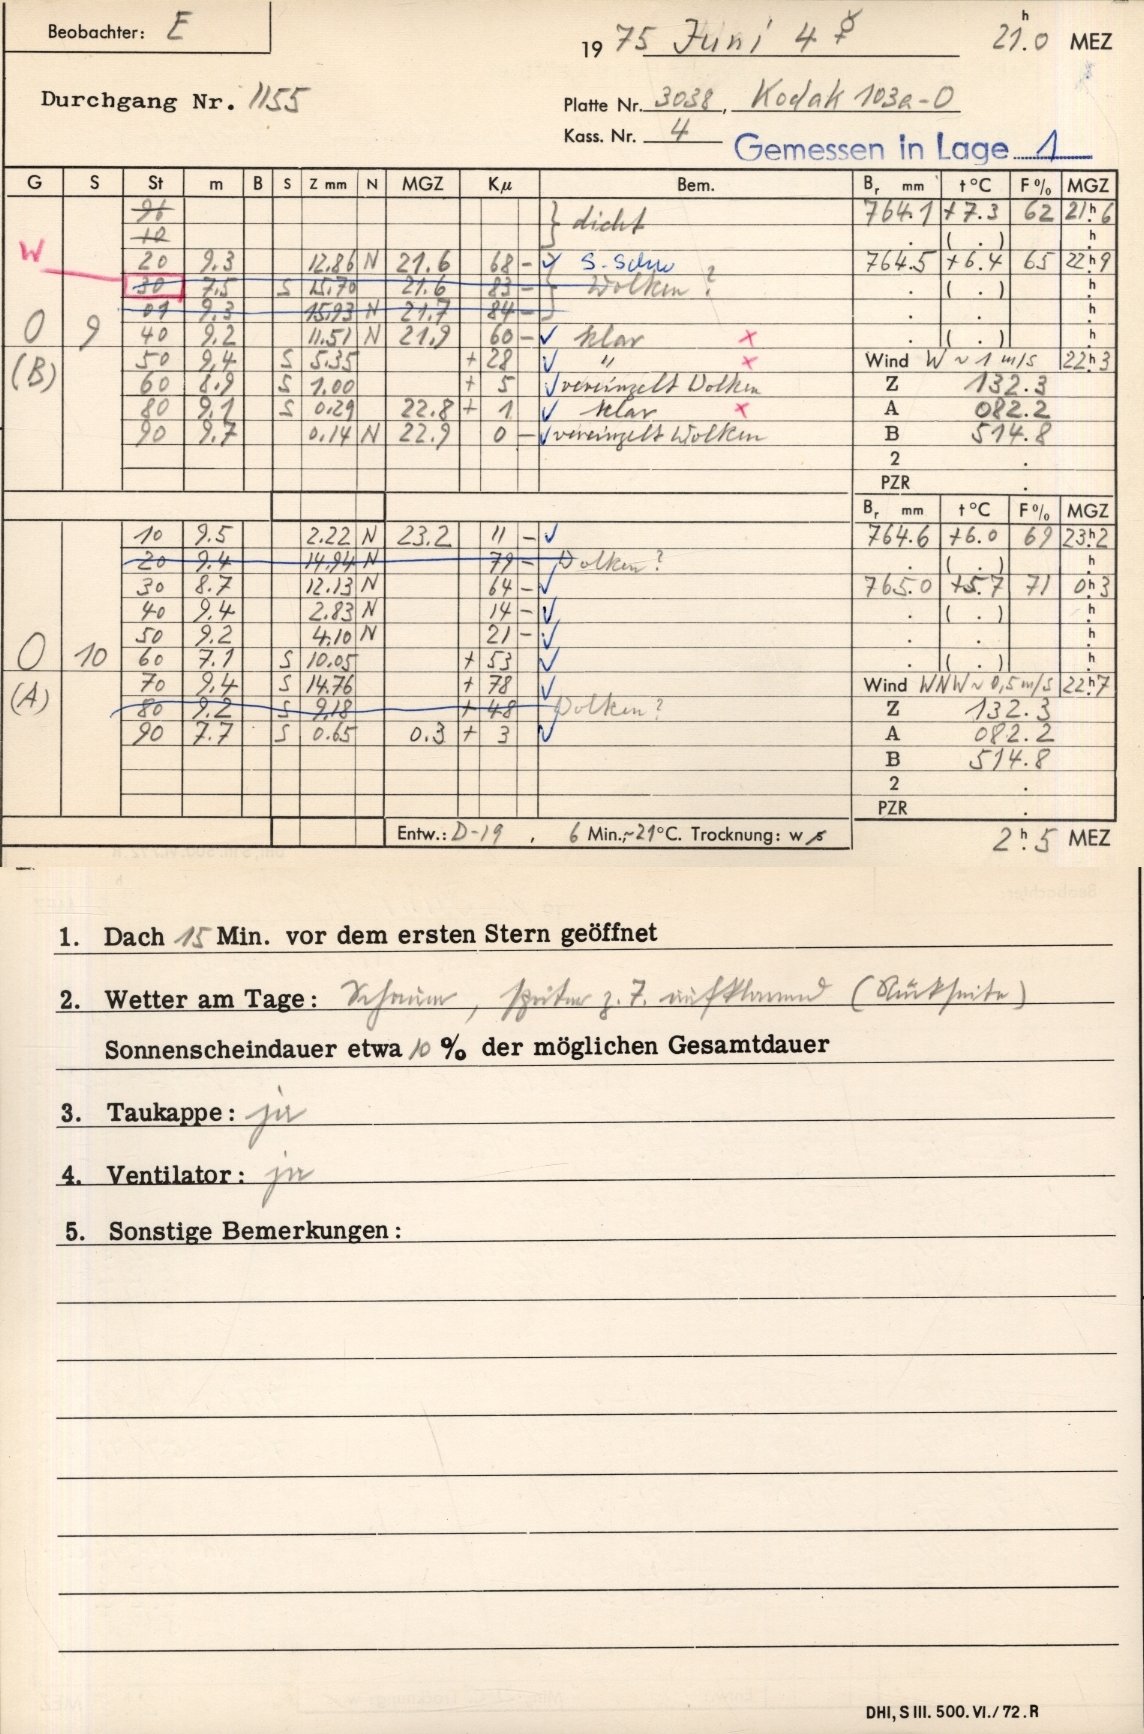 Beobachter: E
1975 Juni 4 ☿ 21h.0 MEZ
Durchgang Nr. 1155
Platte Nr. 3038, Kodak 103a-O
Kass. Nr. 4
Gemessen in Lage 1
G S St m B S Z mm N MGZ Kμ Bem. Br mm t°C F% MGZ
10 } dicht 764.1 +7.3 62 21h6
. ( . ) h
W 20 9.3 12.86 N 21.6 68 - ✓ 764.5 +6.4 65 22h9
30 7.5 S 15.70 21.6 83 - } Wolken ? . ( . ) h
01 9.3 15.93 N 21.7 84 - . . h
0 9 40 9.2 11.51 N 21.9 60 - ✓ klar × . ( . ) h
(B) 50 9.4 S 5.35 + 28 ✓ " × Wind W ~ 1 m/s 22h3
60 8.9 S 1.00 + 5 ✓ vereinzelt Wolken Z 132.3
80 9.1 S 0.29 22.8 + 1 ✓ klar × A 082.2
90 9.7 0.14 N 22.9 0 - ✓ vereinzelt Wolken B 514.8
2 .
PZR .
Br mm t°C F% MGZ
10 9.5 2.22 N 23.2 11 - ✓ 764.6 +6.0 69 23h2
20 9.4 14.94 N 79 - Wolken ? . ( . ) h
30 8.7 12.13 N 64 - ✓ 765.0 +5.7 71 0h3
40 9.4 2.83 N 14 - ✓ . ( . ) h
50 9.2 4.10 N 21 - ✓ . . h
0 10 60 7.1 S 10.05 + 53 ✓ . ( . ) h
(A) 70 9.4 S 14.76 + 78 ✓ Wind WNW ~ 0,5 m/s 22h7
80 9.2 S 9.18 + 48 Wolken ? Z 132.3
90 7.7 S 0.65 0.3 + 3 ✓ A 082.2
B 514.8
2 .
PZR .
Entw.: D-19 , 6 Min., ~21°C. Trocknung: w s
2h.5 MEZ
1. Dach 15 Min. vor dem ersten Stern geöffnet
2. Wetter am Tage: Schauer, später z.T. aufklarend (Rückseite)
Sonnenscheindauer etwa 10 % der möglichen Gesamtdauer
3. Taukappe: ja
4. Ventilator: ja
5. Sonstige Bemerkungen:
DHI, S III. 500. VI./72. R